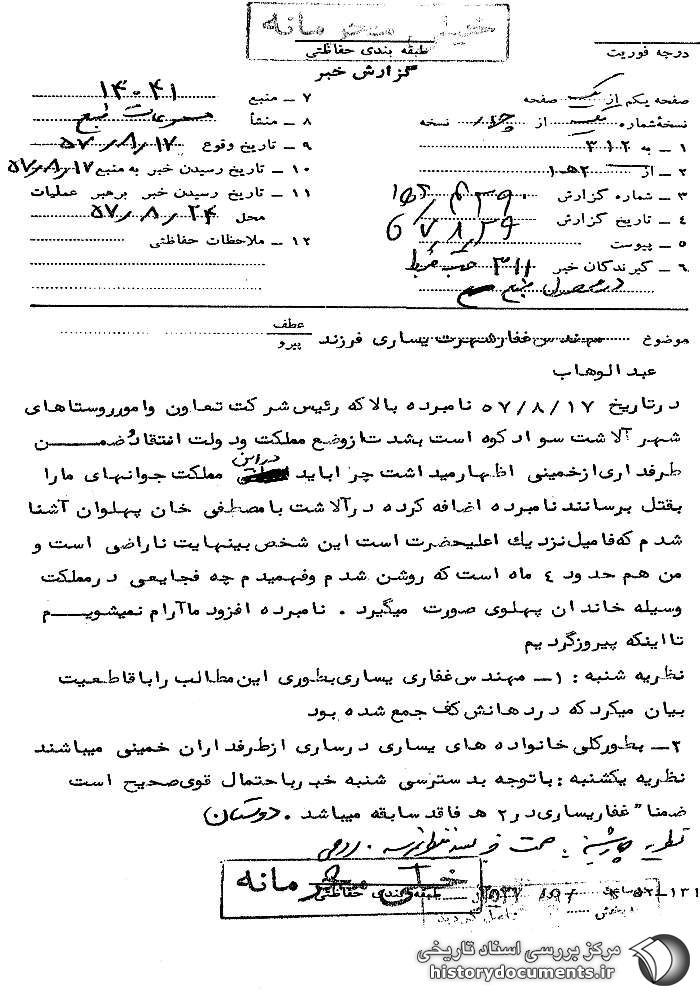 خیلی محرمانه
طبقه بندی حفاظتی
گزارش خبر
درجه فوریت
صفحه یکم از یک صفحه
نسخهٔ شماره یک از نسخه
۱ ـ به ۳۱۲
۲ ـ از ۲ه۱۰
۳ ـ شماره گزارش
۴ ـ تاریخ گزارش
۵ ـ پیوست
۶ ـ گیرندگان خبر ۳۱۱
۷ ـ منبع ۱۴۰۴۱
۸ ـ منشأ مسموعات منبع
۹ ـ تاریخ وقوع ۵۷/۸/۱۷
۱۰ ـ تاریخ رسیدن خبر به منبع ۵۷/۸/۱۷
۱۱ ـ تاریخ رسیدن خبر برهبر عملیات
محل ۵۷/۸/۲۴
۱۲ ـ ملاحظات حفاظتی
موضوع مهندس غفار شهرت یساری فرزند
عطف
پیرو
عبدالوهاب
درتاریخ ۵۷/۸/۱۷ نامبرده بالاکه رئیس شرکت تعاون وامورروستاهای
شهر آلاشت سوادکوه است بشدت ازوضع مملکت ودولت انتقاد و ضمن
طرفداری ازخمینی اظهارمیداشت چرا باید در این مملکت جوانهای مارا
بقتل برسانند نامبرده اضافه کرده درآلاشت بامصطفی خان پهلوان آشنا
شدم که فامیل نزدیك اعلیحضرت است این شخص بینهایت ناراضی است و
من هم حدود ٤ ماه است که روشن شدم وفهمیدم چه فجایعی درمملکت
وسیله خاندان پهلوی صورت میگیرد . نامبرده افزود ماآرام نمیشویم
تااینکه پیروزگردیم
نظریه شنبه : ۱ـ مهندس غفاری یساری بطوری این مطالب را باقاطعیت
بیان میکرد که دردهانش کف جمع شده بود
۲ـ بطورکلی خانواده های یساری درساری ازطرفداران خمینی میباشند
نظریه یکشنبه : باتوجه بدسترسی شنبه خبرباحتمال قوی صحیح است
ضمنا" غفاریساری در ۲ ه‍ فاقد سابقه میباشد . دوستان)
خیلی محرمانه
طبقه بندی حفاظتی
مرکز بررسی اسناد تاریخی
historydocuments.ir